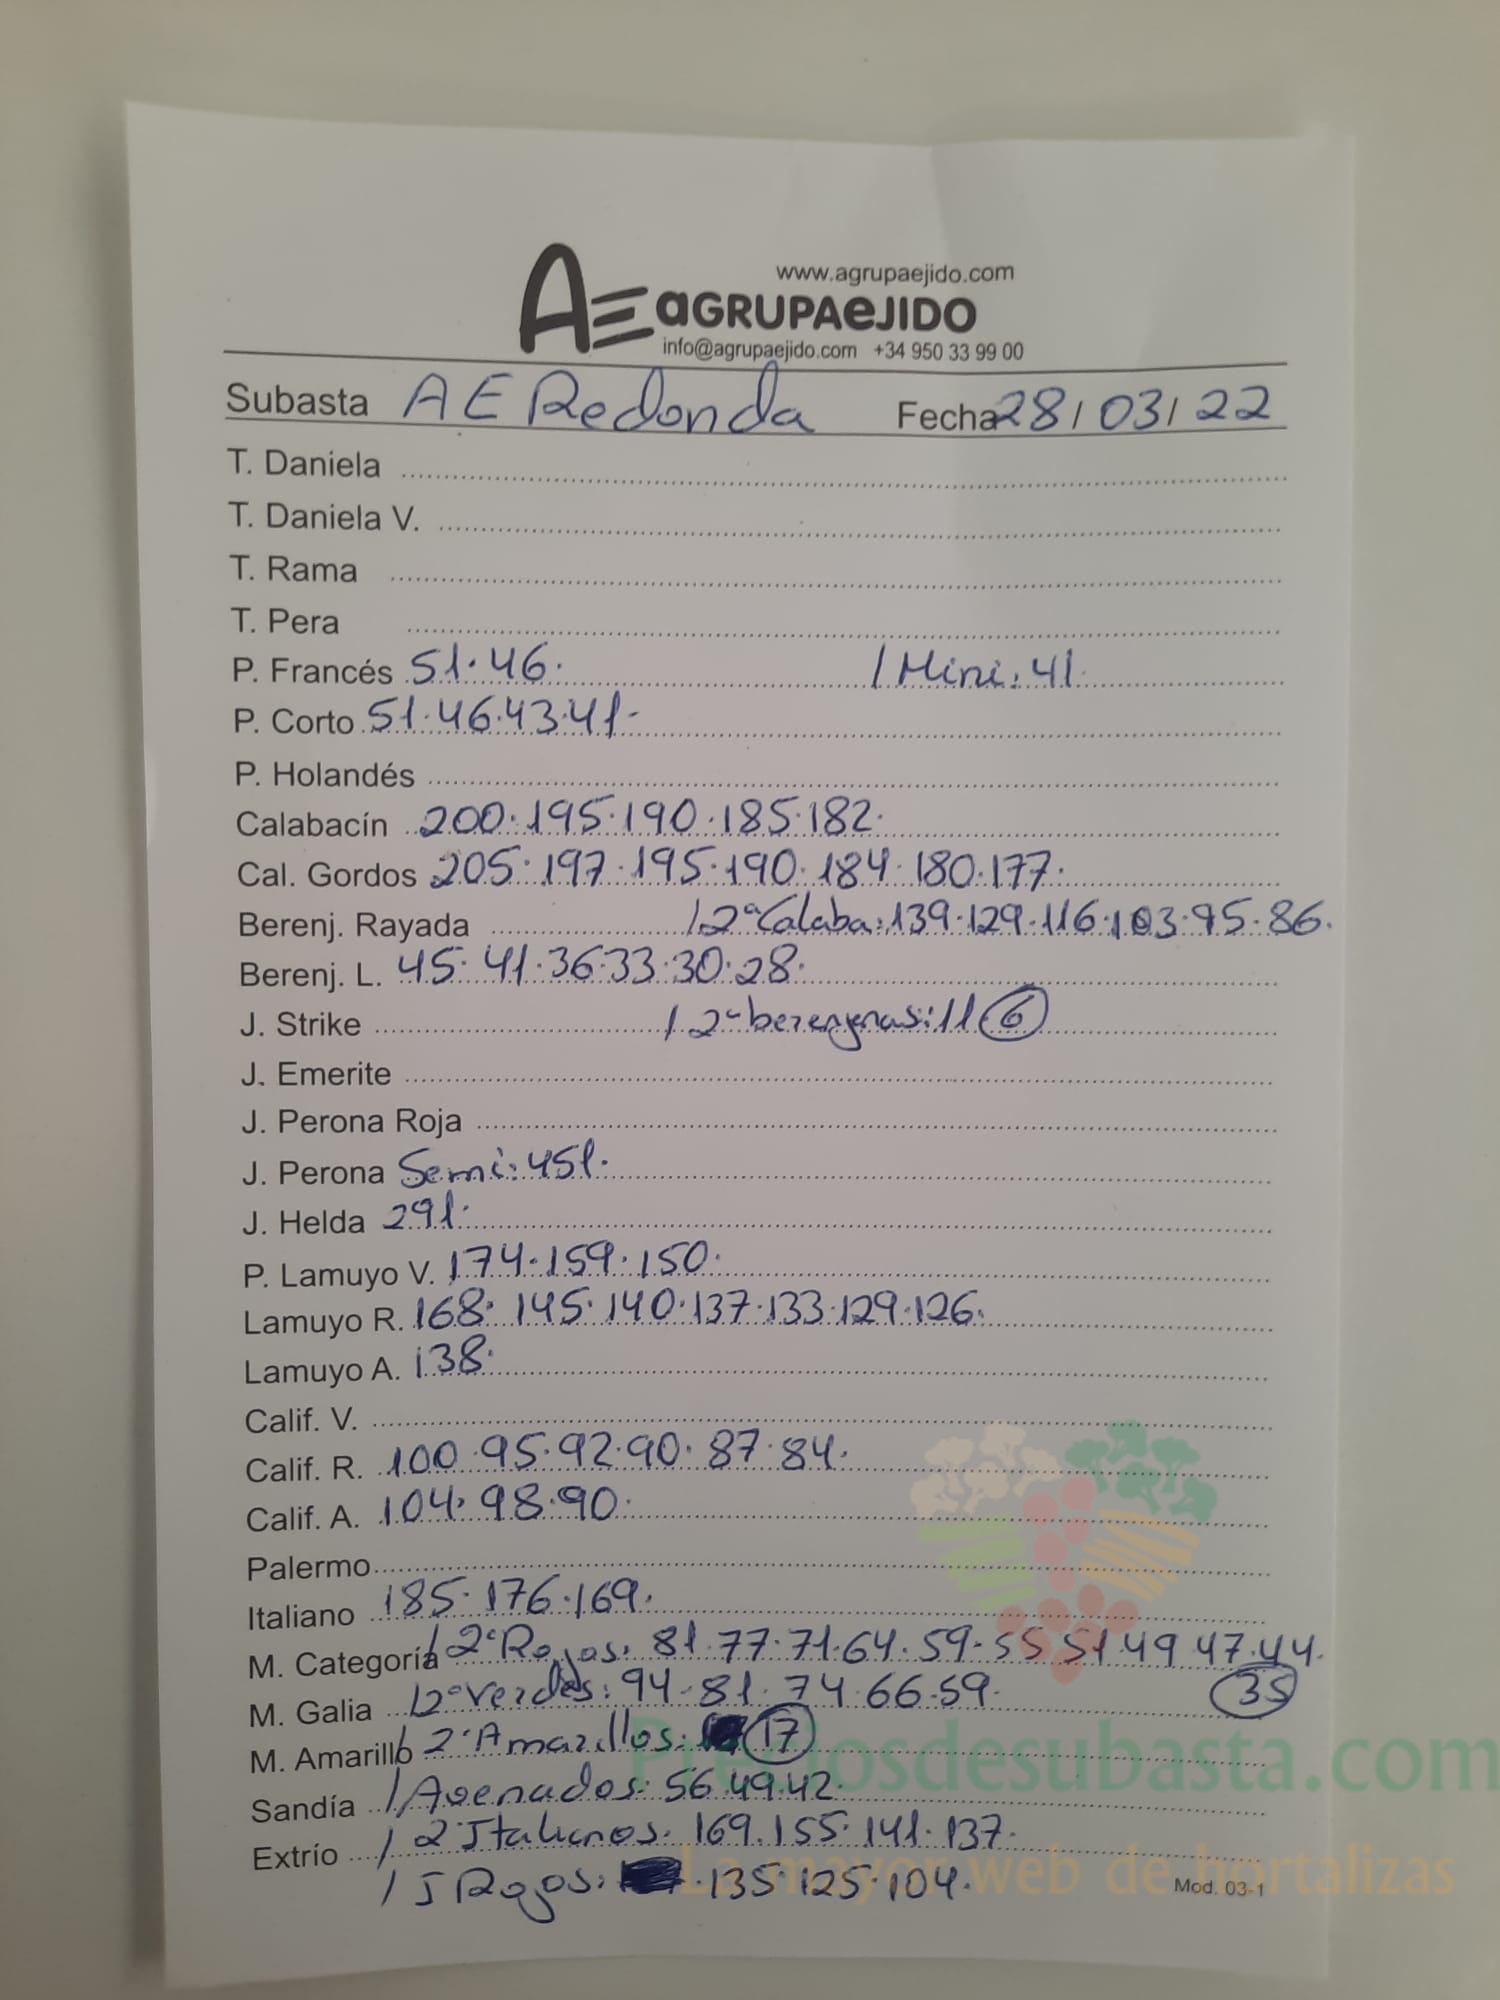 www.agrupaejido.com
AE aGRUPAeJIDO
info@agrupaejido.com +34 950 33 99 00
Subasta AE Redonda Fecha 28/03/22
T. Daniela
T. Daniela V.
T. Rama
T. Pera
P. Francés 51.46. / Mini: 41.
P. Corto 51.46.43.41.
P. Holandés
Calabacín 200.195.190.185.182.
Cal. Gordos 205.197.195.190.184.180.177.
Berenj. Rayada / 2ª Calaba: 139.129.116.103.95.86.
Berenj. L. 45.41.36.33.30.28.
J. Strike / 2ª berengenas: 11 6
J. Emerite
J. Perona Roja
J. Perona Semi: 451.
J. Helda 291.
P. Lamuyo V. 174.159.150.
Lamuyo R. 168.145.140.137.133.129.126.
Lamuyo A. 138.
Calif. V.
Calif. R. 100.95.92.90.87.84.
Calif. A. 104.98.90.
Palermo
Italiano 185.176.169.
M. Categoría / 2ª Rojos: 81.77.71.64.59.55 51.49 47.44.
M. Galia / 2ª Verdes: 94.81.74.66.59. 35
M. Amarillo / 2ª Amarillos: 17
Preciosdesubasta.com
Sandía / Asenados: 56.49.42.
Extrío / 2 Italianos. 169.155.141.137.
/ I Rojos: .135.125.104.
La mayor web de hortalizas
Mod. 03-1